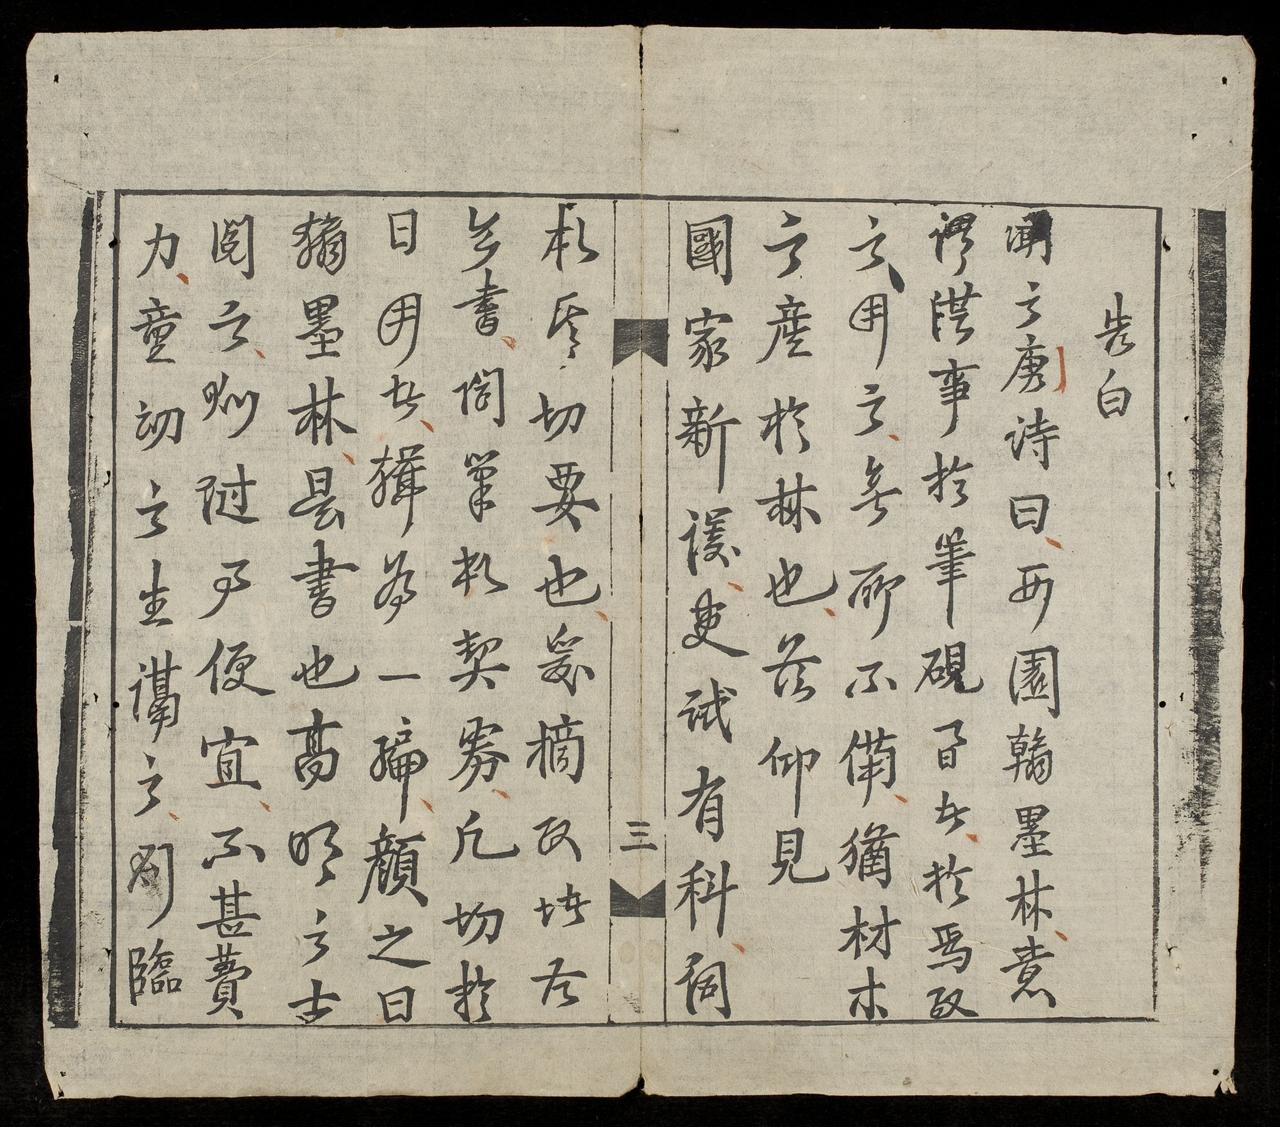 告白
聞之唐詩曰西園翰墨林意
謂從事於筆硯者於焉取
之用之無所不備猶材木
之產於林也茲仰見
國家新議吏試有科詞
札切要也爰摘取諸古
今書問單札契券凡切於
日用者輯為一編顏之曰
翰墨林是書也高明之士
閱之則隨手便宜不甚費
力童幼之生講之則臨